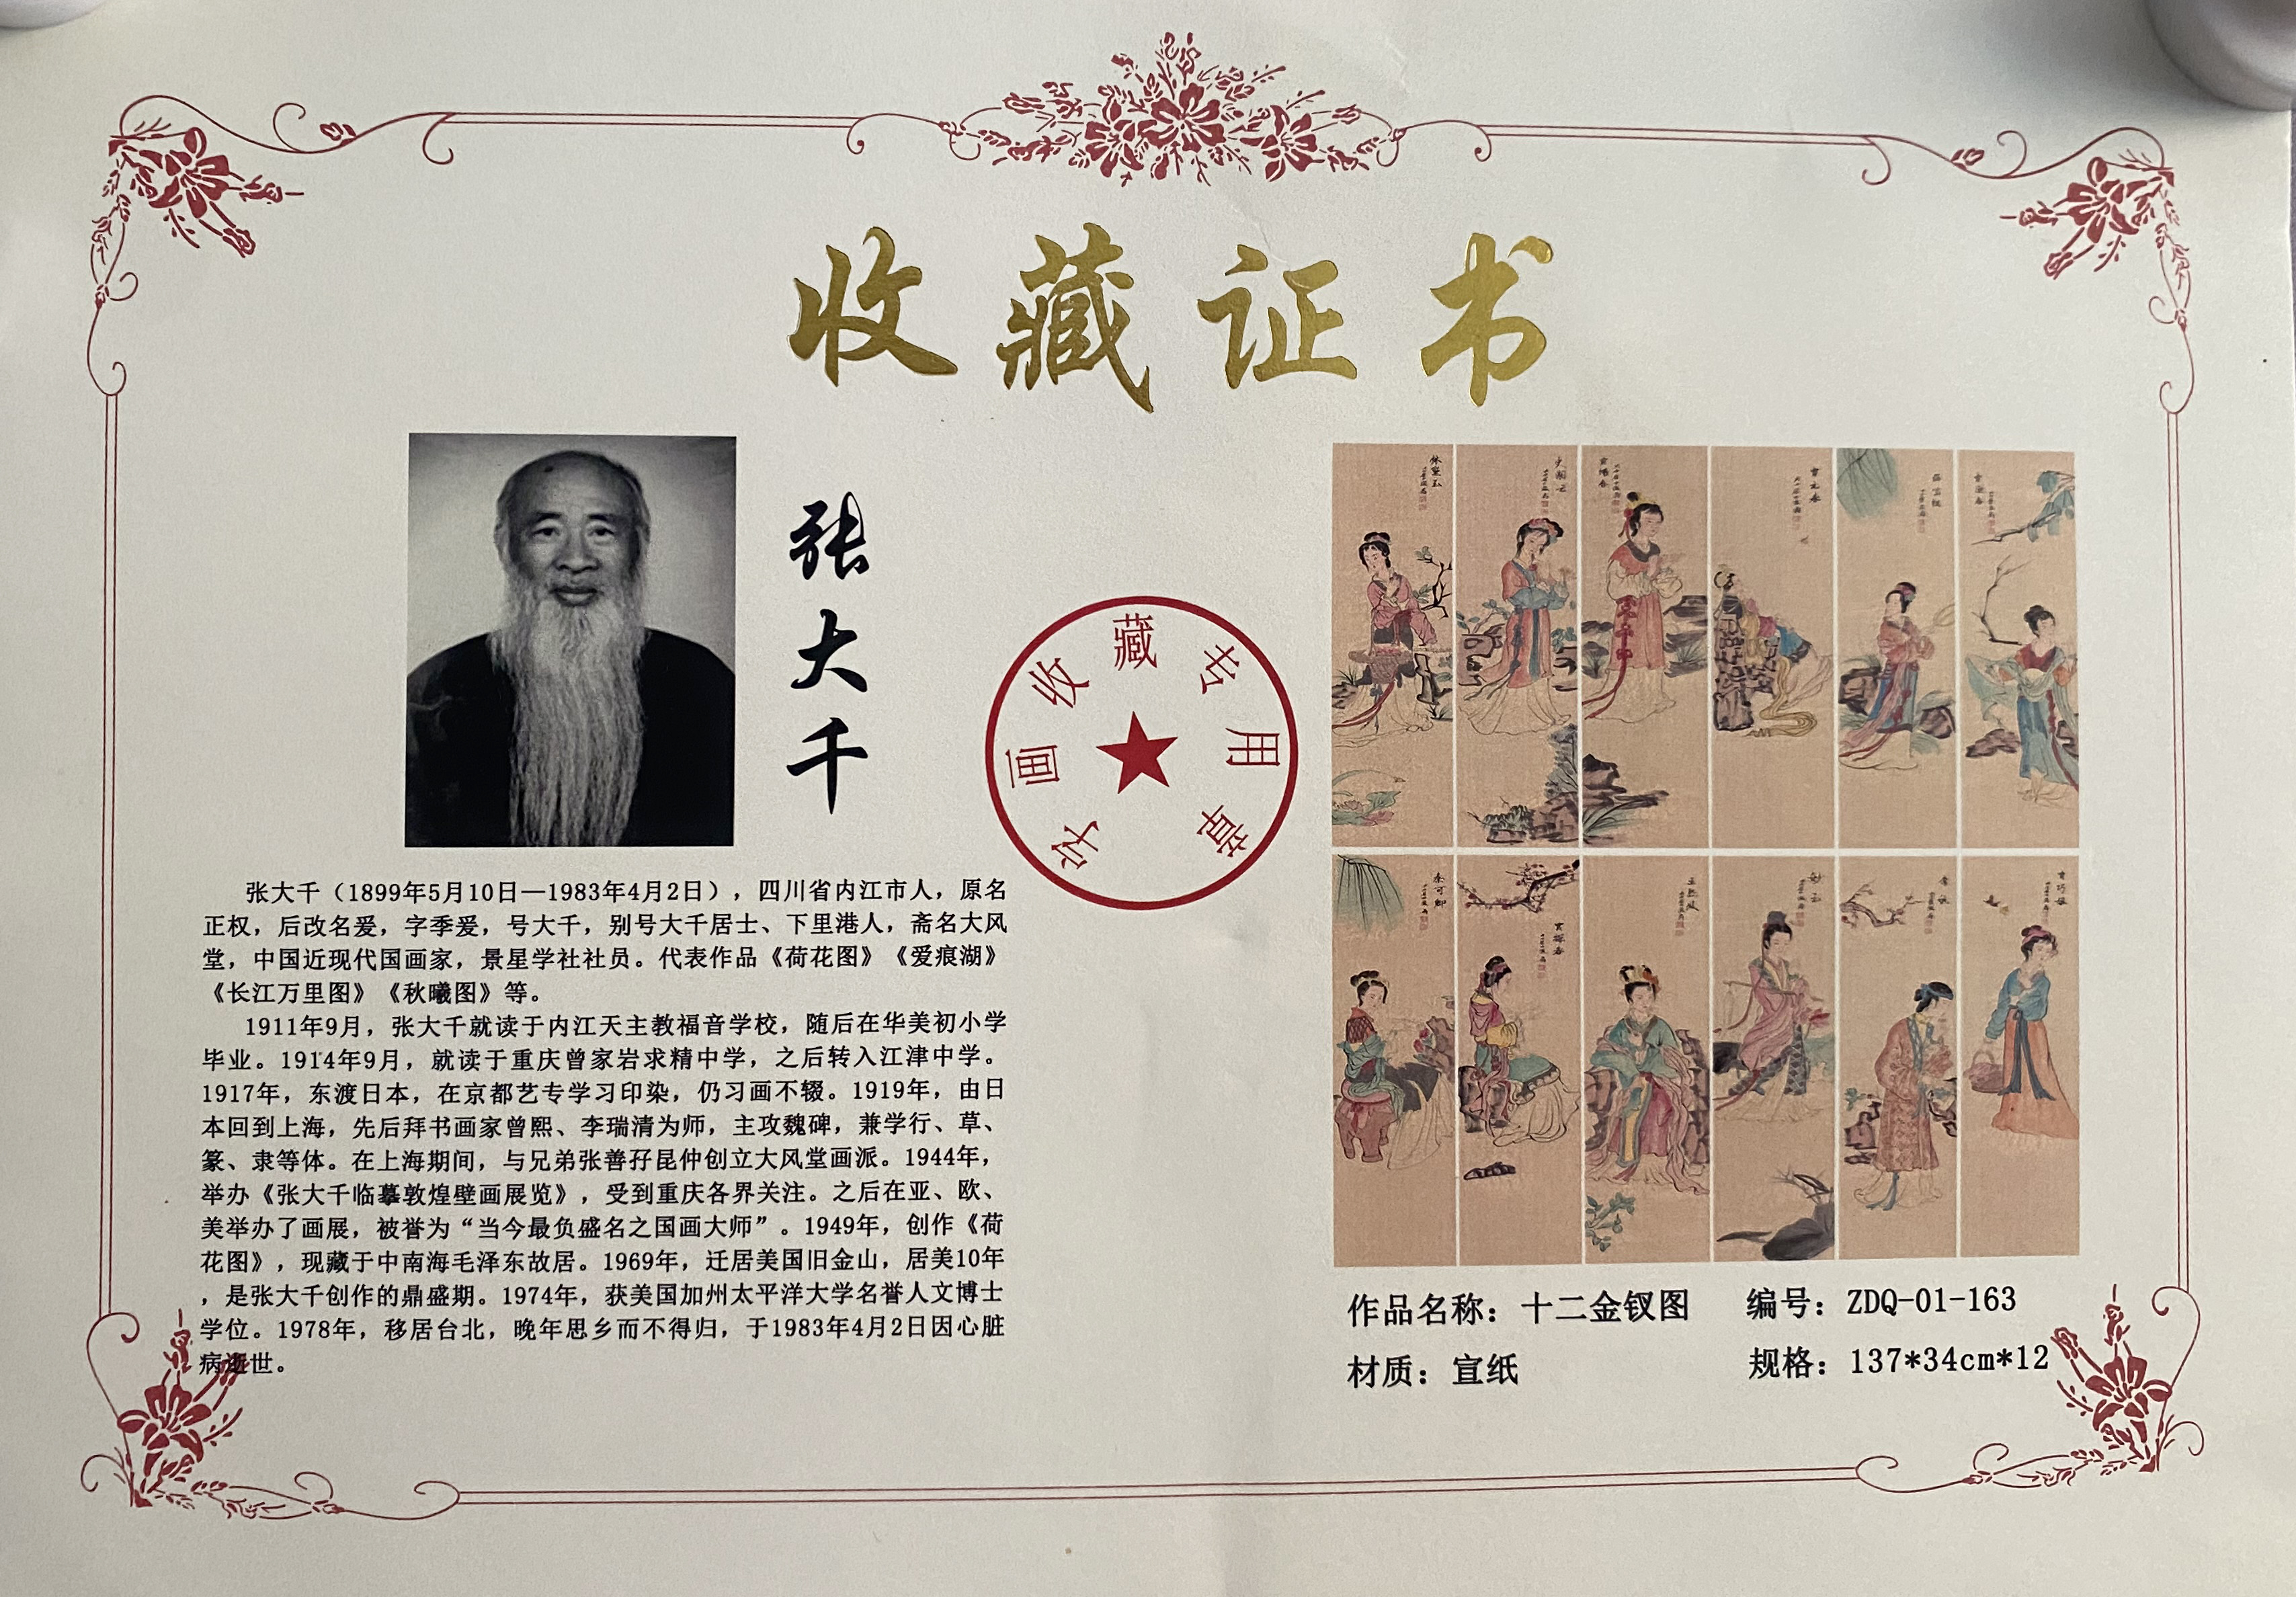 收藏证书
张大千
字画收藏专用章
张大千（1899年5月10日—1983年4月2日），四川省内江市人，原名
正权，后改名爰，字季爰，号大千，别号大千居士、下里港人，斋名大风
堂，中国近现代国画家，景星学社社员。代表作品《荷花图》《爱痕湖》
《长江万里图》《秋曦图》等。
1911年9月，张大千就读于内江天主教福音学校，随后在华美初小学
毕业。1914年9月，就读于重庆曾家岩求精中学，之后转入江津中学。
1917年，东渡日本，在京都艺专学习印染，仍习画不辍。1919年，由日
本回到上海，先后拜书画家曾熙、李瑞清为师，主攻魏碑，兼学行、草、
篆、隶等体。在上海期间，与兄弟张善孖昆仲创立大风堂画派。1944年，
举办《张大千临摹敦煌壁画展览》，受到重庆各界关注。之后在亚、欧、
美举办了画展，被誉为“当今最负盛名之国画大师”。1949年，创作《荷
花图》，现藏于中南海毛泽东故居。1969年，迁居美国旧金山，居美10年
，是张大千创作的鼎盛期。1974年，获美国加州太平洋大学名誉人文博士
学位。1978年，移居台北，晚年思乡而不得归，于1983年4月2日因心脏
病逝世。
作品名称：十二金钗图
编号：ZDQ-01-163
材质：宣纸
规格：137*34cm*12